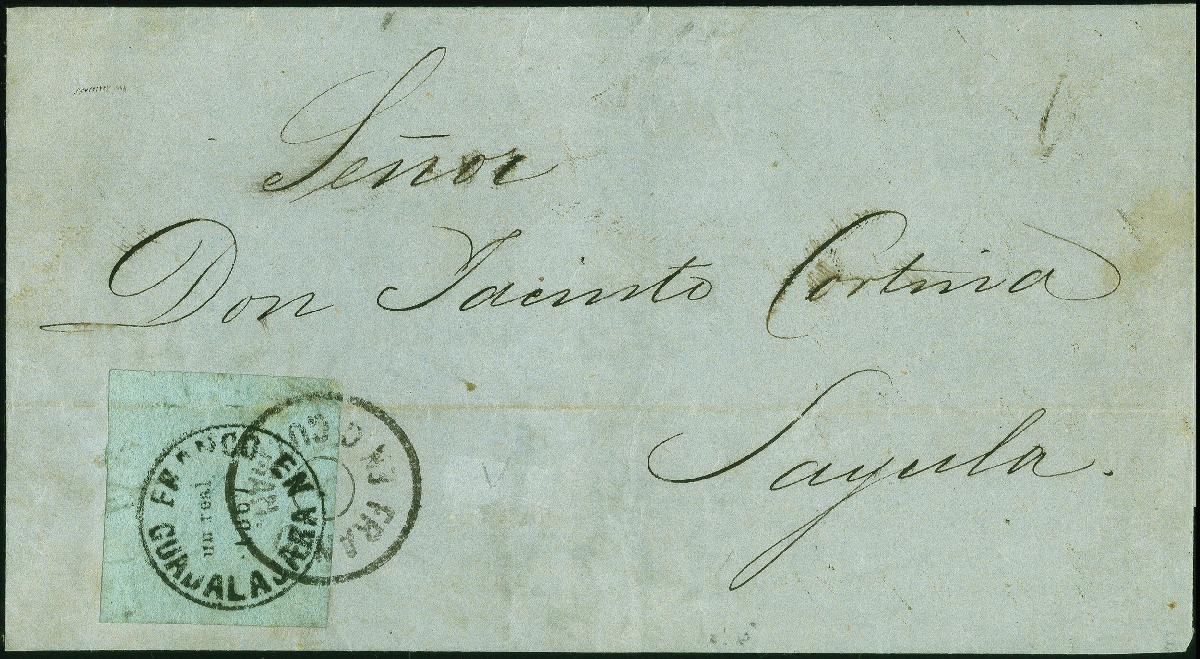 Señor
Don Jacinto Cortina
Sayula.
FRANCO EN
GUADALAJARA
un real
1867